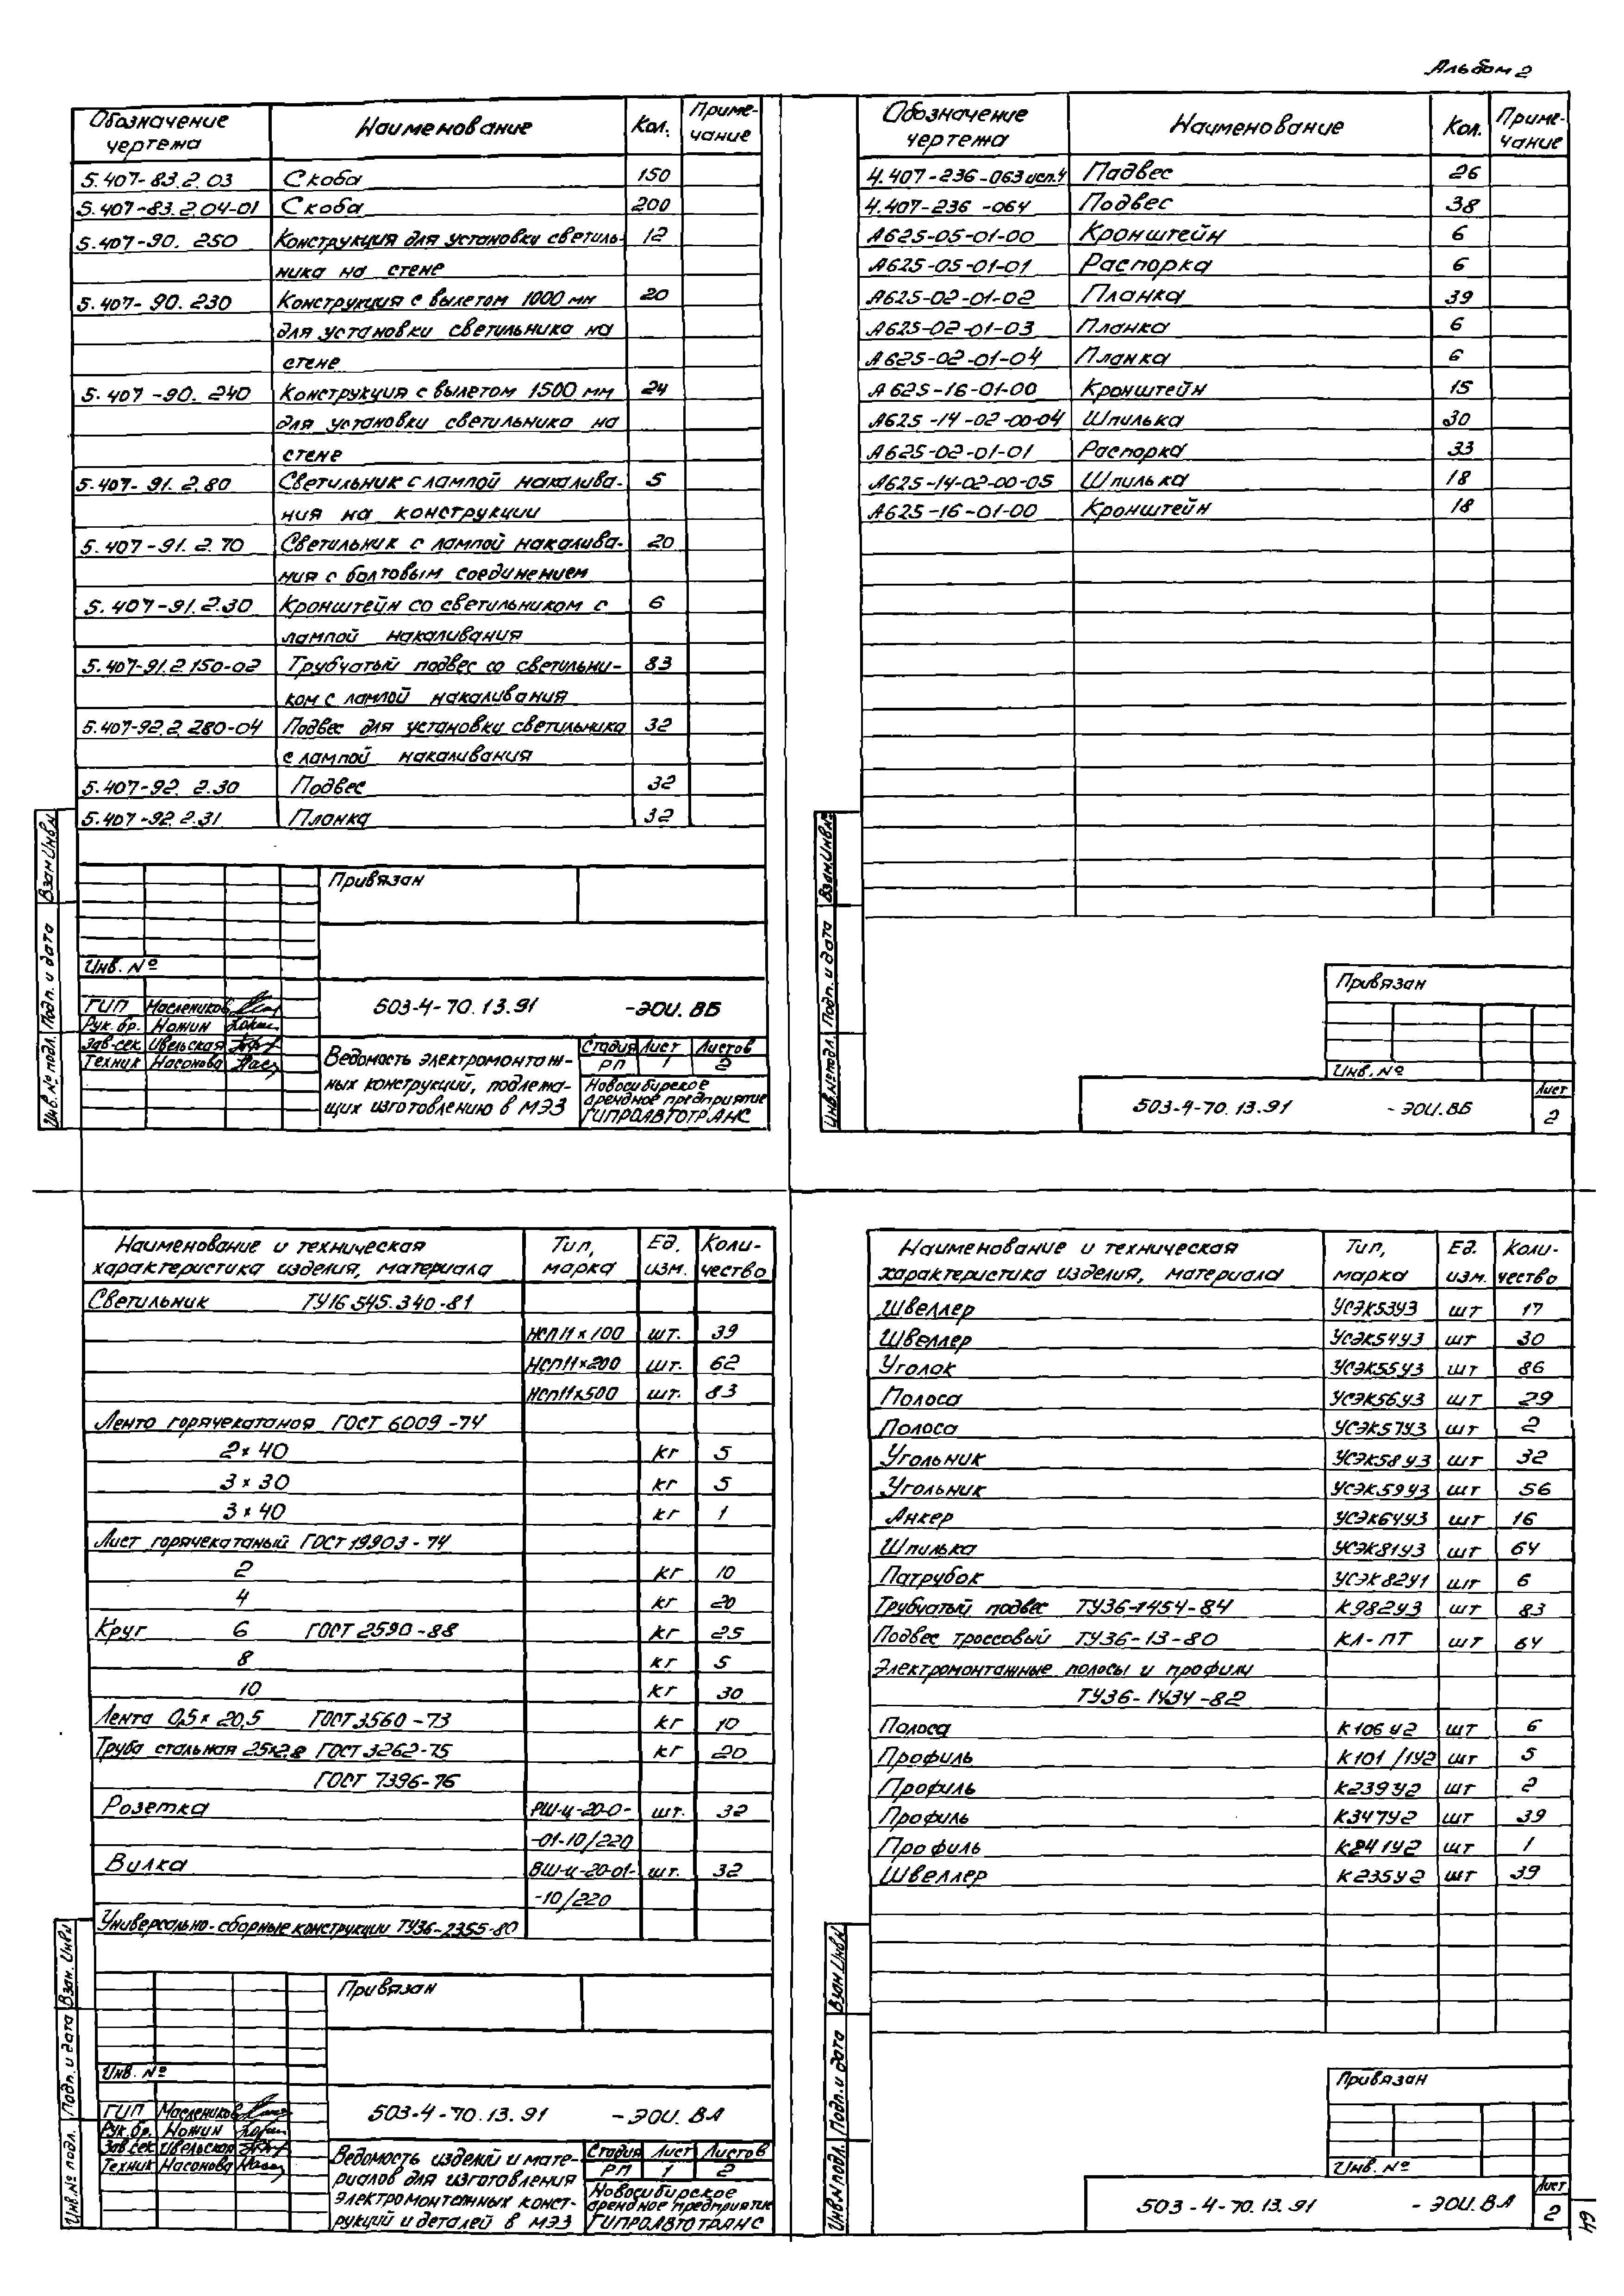 Альбом 2
Обозначение чертежа Наименование Кол. Примечание
5.407-83.2.03 Скоба 150
5.407-83.2.04-01 Скоба 200
5.407-90. 250 Конструкция для установки светиль- 12
ника на стене
5.407-90.230 Конструкция с вылетом 1000 мм 20
для установки светильника на
стене
5.407-90.240 Конструкция с вылетом 1500 мм 24
для установки светильника на
стене
5.407-91.2.80 Светильник с лампой накалива- 5
ния на конструкции
5.407-91.2.70 Светильник с лампой накалива- 20
ния с болтовым соединением
5.407-91.2.30 Кронштейн со светильником с 6
лампой накаливания
5.407-91.2.150-02 Трубчатый подвес со светильни- 83
ком с лампой накаливания
5.407-92.2.280-04 Подвес для установки светильника 32
с лампой накаливания
5.407-92.2.30 Подвес 32
5.407-92.2.31 Планка 32
Привязан
Инв. №
ГИП Маслеников
Рук. бр. Номин
Зав. сек Ивельская
Техник Насонова
503-4-70.13.91 -ЭОИ.ВБ
Ведомость электромонтаж-
ных конструкций, подлежа-
щих изготовлению в МЭЗ
Стадия Лист Листов
РП 1 2
Новосибирское
арендное предприятие
ГИПРОАВТОТРАНС
Инв. № подл. Подп. и дата Взам Инв №
Обозначение чертежа Наименование Кол. Примечание
4.407-236-063 исп.4 Падвес 26
4.407-236-064 Подвес 38
А625-05-01-00 Кронштейн 6
А625-05-01-01 Распорка 6
А625-02-01-02 Планка 39
А625-02-01-03 Планка 6
А625-02-01-04 Планка 6
А625-16-01-00 Кронштейн 15
А625-14-02-00-04 Шпилька 30
А625-02-01-01 Распорка 33
А625-14-02-00-05 Шпилька 18
А625-16-01-00 Кронштейн 18
Привязан
Инв. №
503-4-70.13.91 -ЭОИ.ВБ
Лист
2
Инв. № подл. Подп. и дата Взам. Инв №
Наименование и техническая характеристика изделия, материала Тип, марка Ед. изм. Количество
Светильник ТУ16.545.340-81
НСП11×100 шт. 39
НСП11×200 шт. 62
НСП11×500 шт. 83
Лента горячекатаная ГОСТ 6009-74
2×40 кг 5
3×30 кг 5
3×40 кг 1
Лист горячекатаный ГОСТ 19903-74
2 кг 10
4 кг 20
Круг 6 ГОСТ 2590-88 кг 25
8 кг 5
10 кг 30
Лента 0,5×20,5 ГОСТ 3560-73 кг 10
Труба стальная 25×2,8 ГОСТ 3262-75 кг 20
ГОСТ 7396-76
Розетка РШ-ц-20-0- шт. 32
-01-10/220
Вилка ВШ-ц-20-01- шт. 32
-10/220
Универсально-сборные конструкции ТУ36-2355-80
Привязан
Инв. №
ГИП Маслеников
Рук. бр. Номин
Зав. сек Ивельская
Техник Насонова
503-4-70.13.91 -ЭОИ.ВА
Ведомость изделий и мате-
риалов для изготовления
электромонтажных конст-
рукций и деталей в МЭЗ
Стадия Лист Листов
РП 1 2
Новосибирское
арендное предприятие
ГИПРОАВТОТРАНС
Инв. № подл. Подп. и дата Взам. Инв №
Наименование и техническая характеристика изделия, материала Тип, марка Ед. изм. Количество
Швеллер УСЭК53У3 шт 17
Швеллер УСЭК54У3 шт 30
Уголок УСЭК55У3 шт 86
Полоса УСЭК56У3 шт 29
Полоса УСЭК57У3 шт 2
Угольник УСЭК58У3 шт 32
Угольник УСЭК59У3 шт 56
Анкер УСЭК64У3 шт 16
Шпилька УСЭК81У3 шт 64
Патрубок УСЭК82У1 шт 6
Трубчатый подвес ТУ36-1454-84 К982У3 шт 83
Подвес троссовый ТУ36-13-80 КЛ-ПТ шт 64
Электромонтажные полосы и профили
ТУ36-1434-82
Полоса К106У2 шт 6
Профиль К101/1У2 шт 5
Профиль К239У2 шт 2
Профиль К347У2 шт 39
Профиль К241У2 шт 1
Швеллер К235У2 шт 39
Привязан
Инв. №
503-4-70.13.91 -ЭОИ.ВА
Лист
2
Инв № подл. Подп. и дата Взам Инв №
64